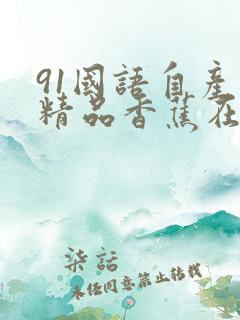 91國語自產
精品香蕉在
柒話
未经同意禁止转载